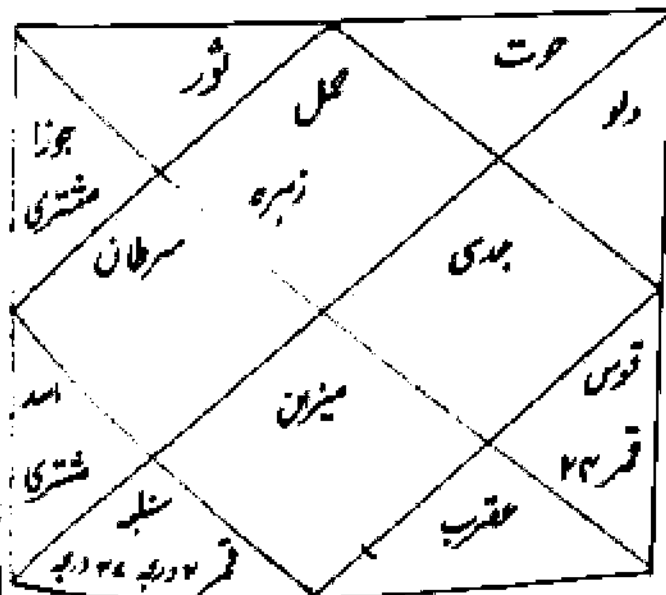 حوت
ثور
حمل
دلو
جوزا
مشتری
زہرہ
سرطان
جدی
قوس
قمر ۲۴
میزان
اسد
مشتری
سنبلہ
عقرب
قمر ۲ درجہ ۲۷ درجہ